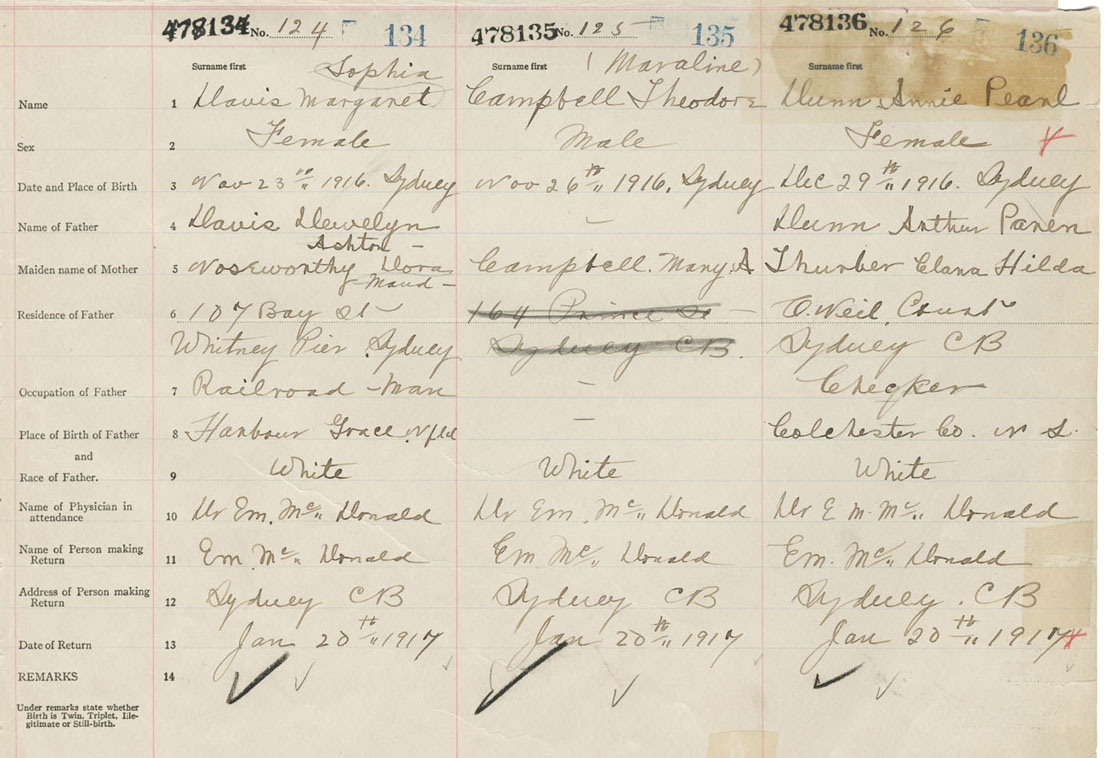 478134 No. 124 134 478135 No. 125 135 478136 No. 126 136
Surname first Surname first Surname first
Sophia (Maraline)
Name 1 Davis Margaret Campbell Theodore Dunn Annie Pearl
Sex 2 Female Male Female
Date and Place of Birth 3 Nov 23rd 1916. Sydney Nov 26th 1916. Sydney Dec 29th 1916. Sydney
Name of Father 4 Davis Llewelyn – Dunn Arthur
Ashton –
Maiden name of Mother 5 Noseworthy Dora Campbell. Mary A Thurber Clara Hilda
Maud –
Residence of Father 6 107 Bay St 164 Prince St – O.Neil. Court
Whitney Pier. Sydney Sydney CB. Sydney CB
Occupation of Father 7 Railroad – Man – Checker
Place of Birth of Father 8 Harbour Grace. Nfld – Colchester Co. N S.
and
Race of Father. 9 White White White
Name of Physician in
attendance 10 Dr Em. Mc Donald Dr Em. Mc Donald Dr E M. Mc Donald
Name of Person making
Return 11 Em. Mc Donald Em Mc Donald Em. Mc Donald
Address of Person making
Return 12 Sydney CB Sydney CB Sydney. CB
Date of Return 13 Jan 20th 1917 Jan 20th 1917 Jan 20th 1917
REMARKS 14
Under remarks state whether
Birth is Twin, Triplet, Ille-
gitimate or Still-birth.